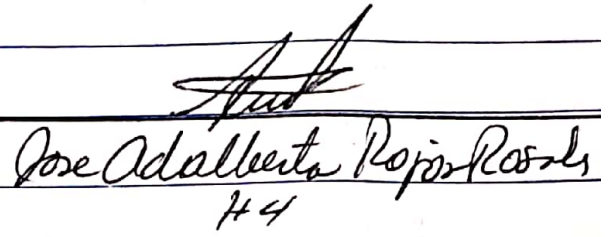 Jose Adalberto Rojas Rosales
H4